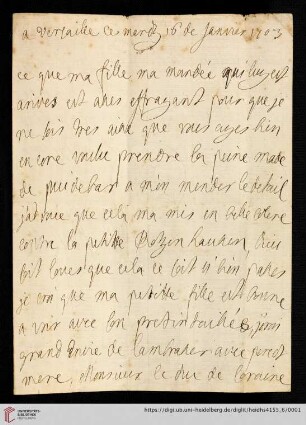 a versaille ce merdy 16 de Janvier 1703
ce que ma fille ma mandée qui luy est
arives est ases effrayant pour que je
ne sois tres aise que vous ayes bien
encore voulu prendre la peine mad
de puidebar a m'en mender le detail
j'advoue que cela ma mis en colere
contre la petitte Dieu
soit loués que cela ce soit si bien passes
je croi que ma petitte fille est bonne
a voir avec son
grand envie de l'ambrasser avec
mere, Monsieur le duc de loraine
UNIVERSITÄTS-
BIBLIOTHEK
HEIDELBERG
https://digi.ub.uni-heidelberg.de/diglit/heidhs4155_6/0001